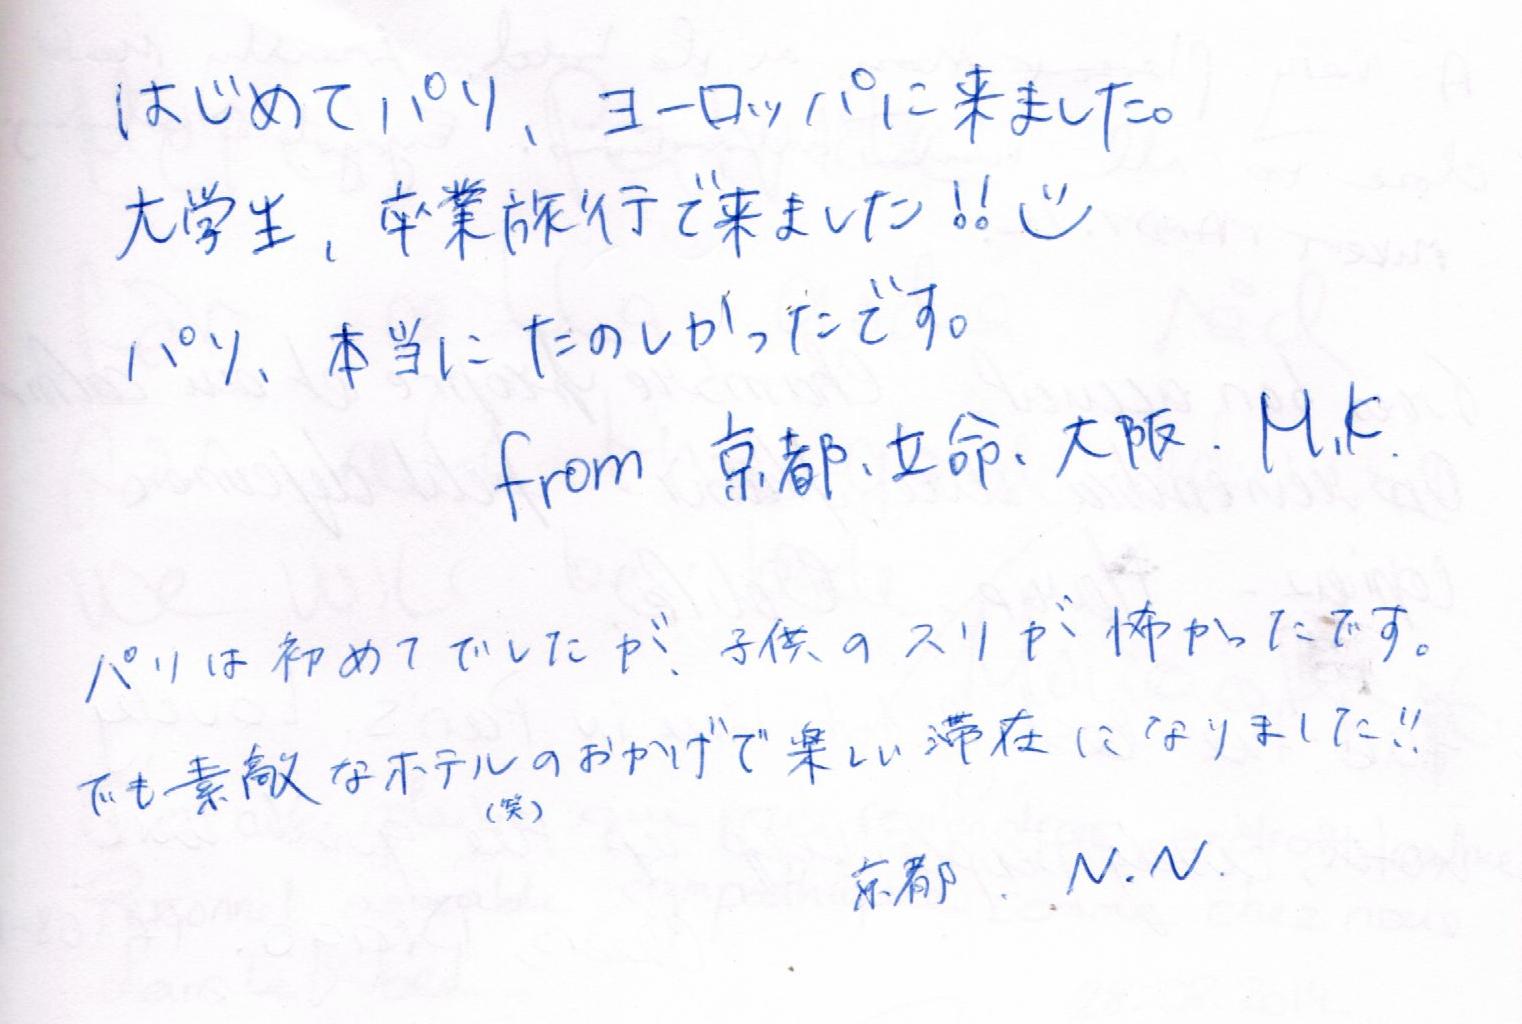 はじめてパリ、ヨーロッパに来ました。
大学生、卒業旅行で来ました!!
パリ、本当にたのしかったです。
from 京都、立命、大阪. M.K.
パリは初めてでしたが、子供のスリが怖かったです。
でも素敵なホテルのおかげで楽しい滞在になりました!!
(笑)
京都. N.N.